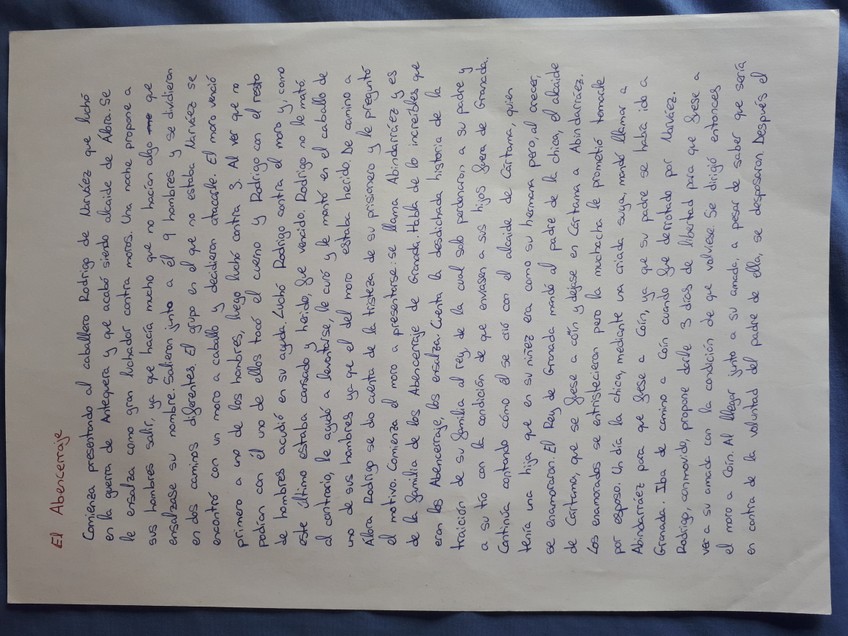 El Abencerraje
Comienza presentando al caballero Rodrigo de Narváez que luchó
en la guerra de Antequera y que acabó siendo alcaide de Álora. Se
le ensalza como gran luchador contra moros. Una noche propone a
sus hombres salir, ya que hacía mucho que no hacían algo que
ensalzase su nombre. Salieron junto a él 9 hombres y se dividieron
en dos caminos diferentes. El grupo en el que no estaba Narváez se
encontró con un moro a caballo y decidieron atacarle. El moro venció
primero a uno de los hombres, luego luchó contra 3. Al ver que no
podían con él uno de ellos tocó el cuerno y Rodrigo con el resto
de hombres acudió en su ayuda. Luchó Rodrigo contra el moro y, como
este último estaba cansado y herido, fue vencido. Rodrigo no le mató
al contrario, le ayudó a levantarse, le curó y le montó en el caballo de
uno de sus hombres ya que el del moro estaba herido. De camino a
Álora Rodrigo se dio cuenta de la tristeza de su prisionero y le preguntó
el motivo. Comienza el moro a presentarse: se llama Abindarráez y es
de la familia de los Abencerraje de Granada. Habla de lo increíbles que
eran los Abencerraje, los ensalza. Cuenta la desdichada historia de la
traición de su familia al rey, de la cual solo perdonaron a su padre y
a su tío con la condición de que enviasen a sus hijos fuera de Granada.
Continúa contando cómo él se crió con el alcaide de Cártama, quien
tenía una hija que en su niñez era como su hermana pero, al crecer,
se enamoraron. El Rey de Granada mandó al padre de la chica, el alcaide
de Cártama, que se fuese a coín y dejase en Cártama a Abindarráez.
Los enamorados se entristecieron pero la muchacha le prometió tomarle
por esposo. Un día la chica, mediante una criada suya, mandó llamar a
Abindarráez para que fuese a Coín, ya que su padre se había ido a
Granada. Iba de camino a Coín cuando fue derrotado por Narváez.
Rodrigo, conmovido, propone darle 3 días de libertad para que fuese a
ver a su amada con la condición de que volviese. Se dirigió entonces
el moro a Coín. Al llegar junto a su amada, a pesar de saber que sería
en contra de la voluntad del padre de ella, se desposaron. Después el